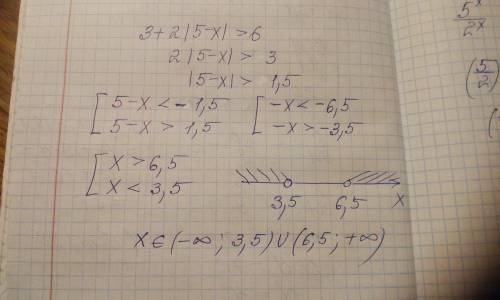 3+2|5-x|>6
2|5-x|> 3
|5-x|> 1,5
[ 5-x < - 1,5
5-x > 1,5
[ -x < -6,5
-x > -3,5
[ x > 6,5
x < 3,5
3,5 6,5 x
x ∈ (-∞ ; 3,5) ∪ (6,5 ; +∞)
5^x
2^x
(5
2
(